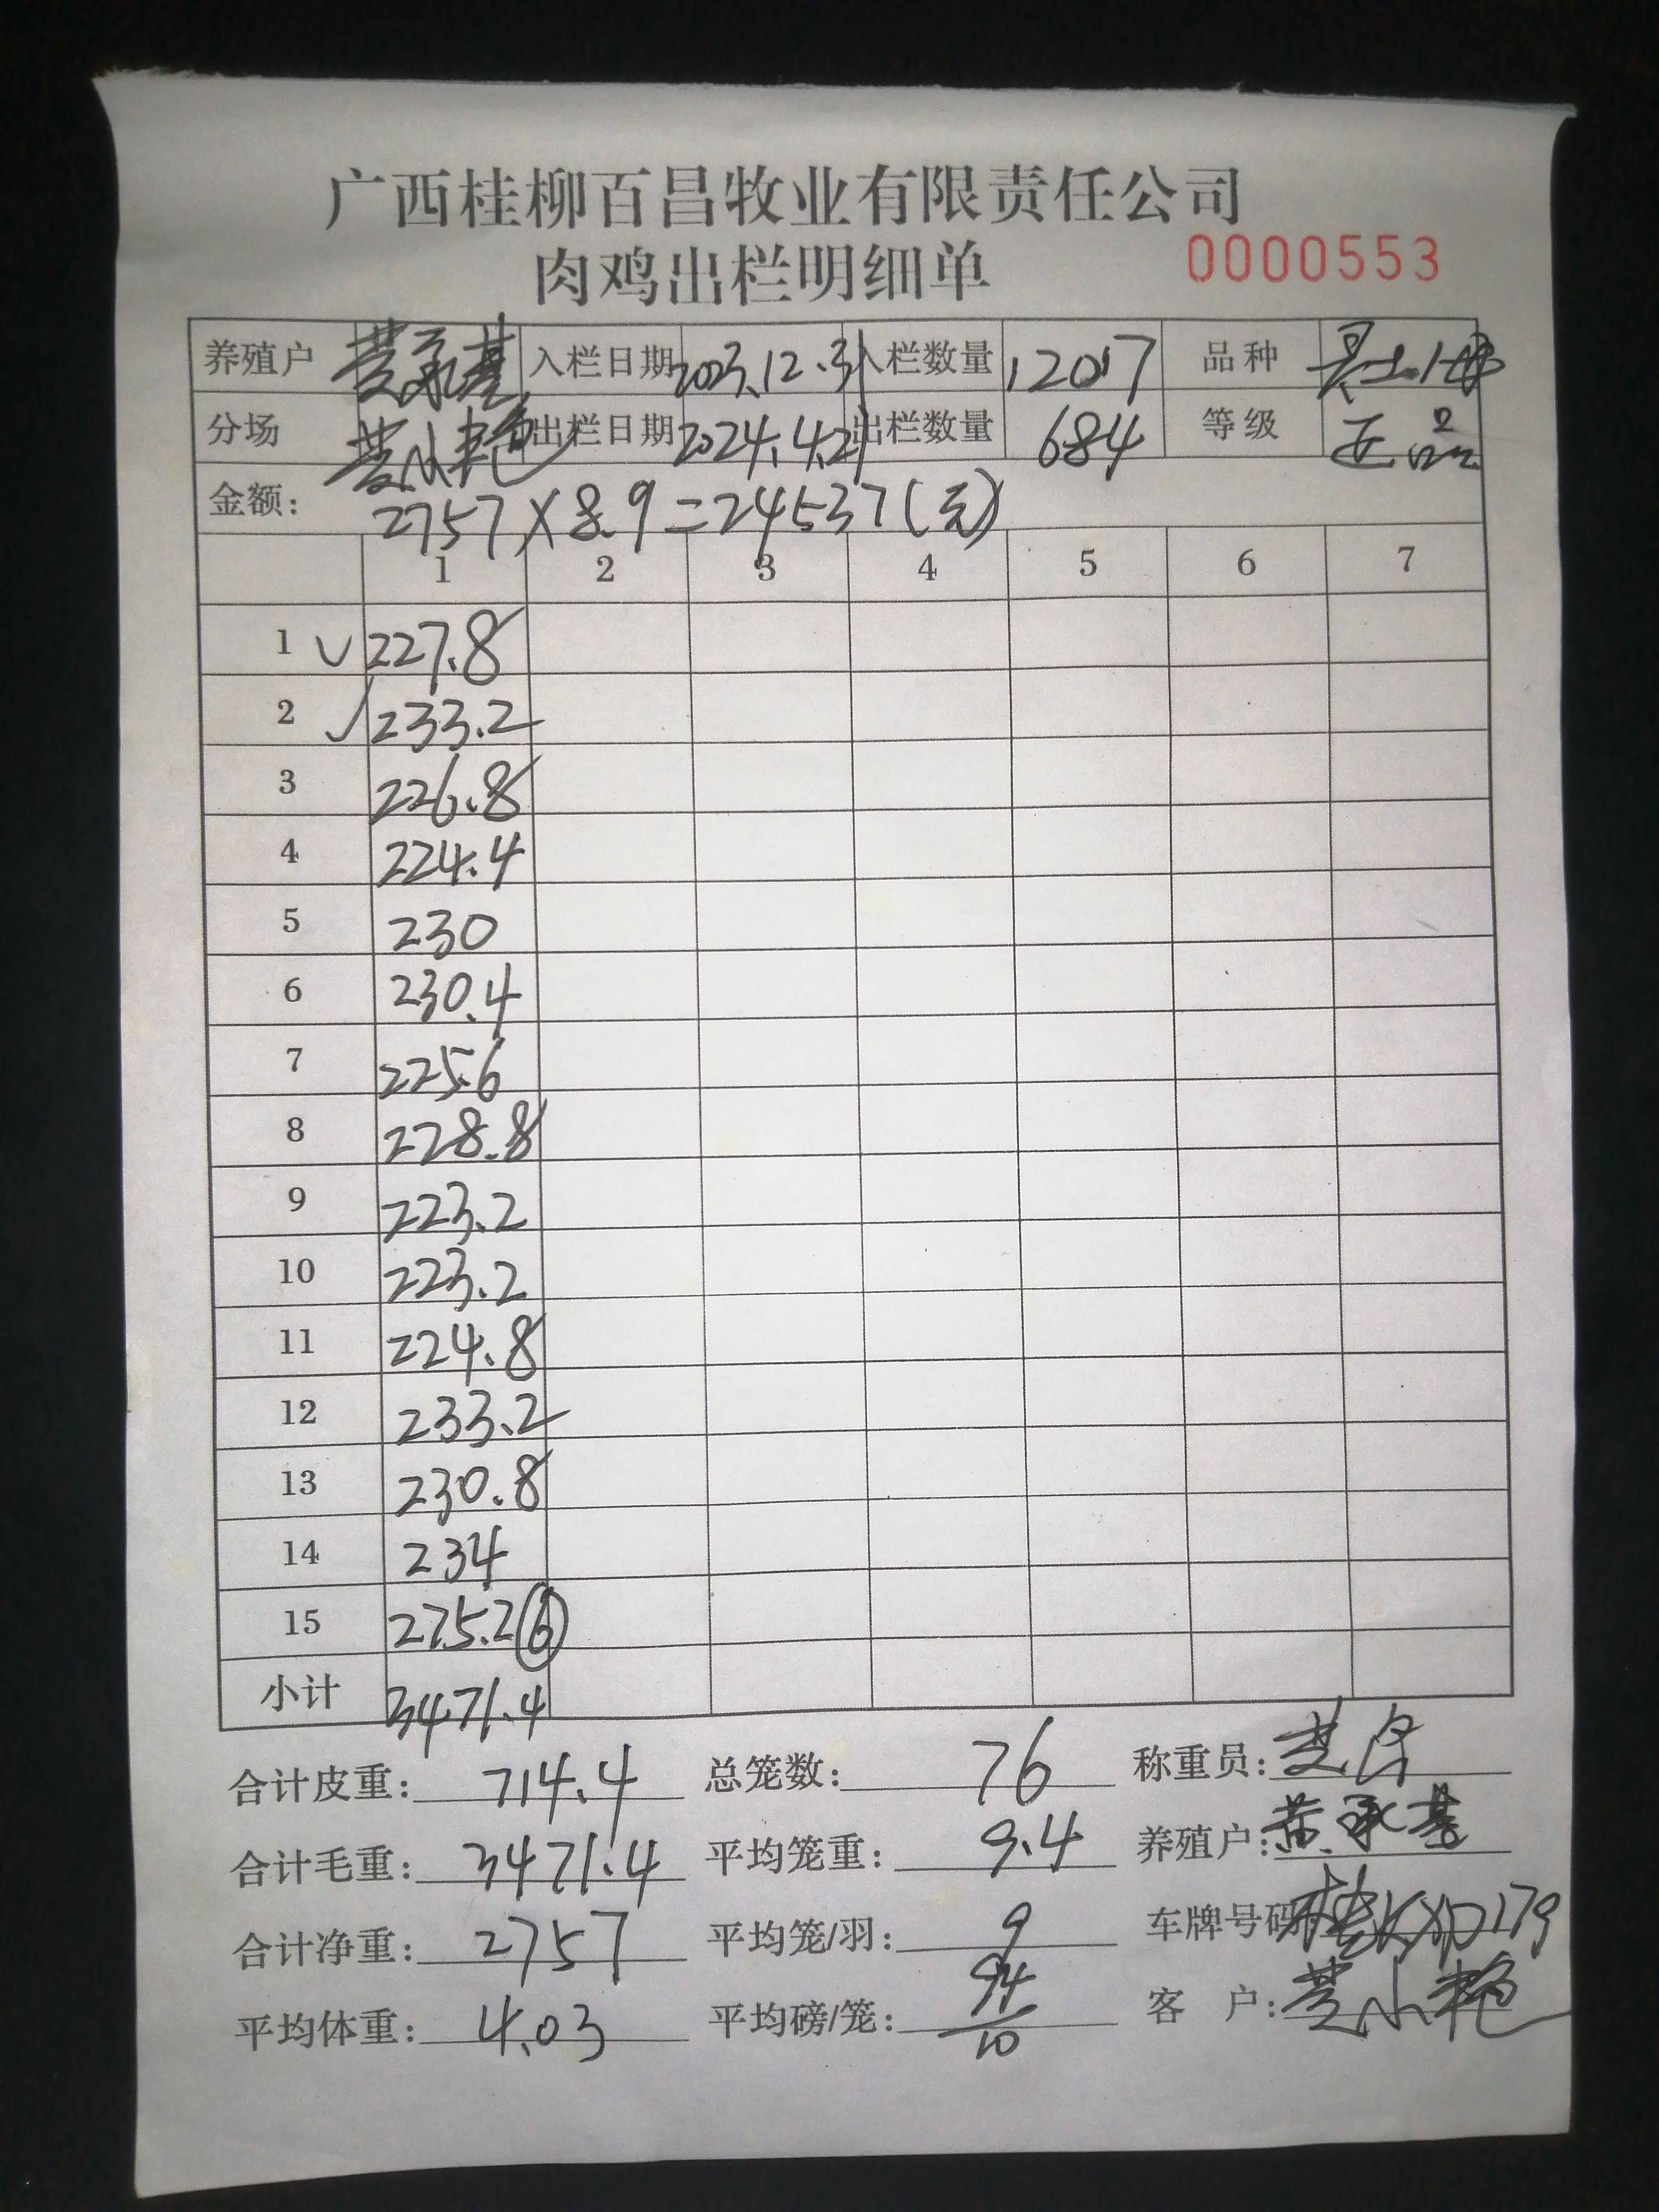 广西桂柳百昌牧业有限责任公司
肉鸡出栏明细单 0000553
养殖户 黄承基 入栏日期 2023.12.31 入栏数量 12017 品种
分场 黄小艳 出栏日期 2024.4.21 出栏数量 684 等级 正品
金额: 2757×8.9=24537(元)
1 2 3 4 5 6 7
1 ✓ 227.8
2 ✓ 233.2
3 226.8
4 224.4
5 230
6 230.4
7 225.6
8 228.8
9 223.2
10 223.2
11 224.8
12 233.2
13 230.8
14 234
15 275.2 ⑥
小计 3471.4
合计皮重: 714.4 总笼数: 76 称重员:
合计毛重: 3471.4 平均笼重: 9.4 养殖户: 黄承基
合计净重: 2757 平均笼/羽: 9 车牌号码:
平均体重: 4.03 平均磅/笼: 94/10 客 户: 黄小艳